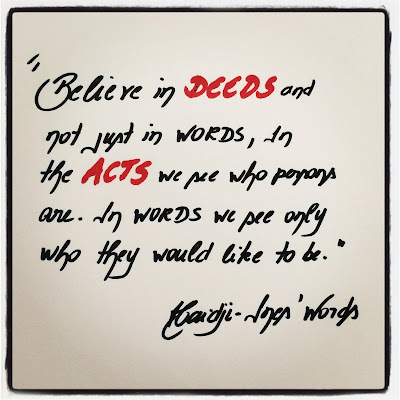 "Believe in DEEDS and
not just in WORDS, In
the ACTS we see who persons
are. In WORDS we see only
who they would like to be."
Haidji - Ines' Words